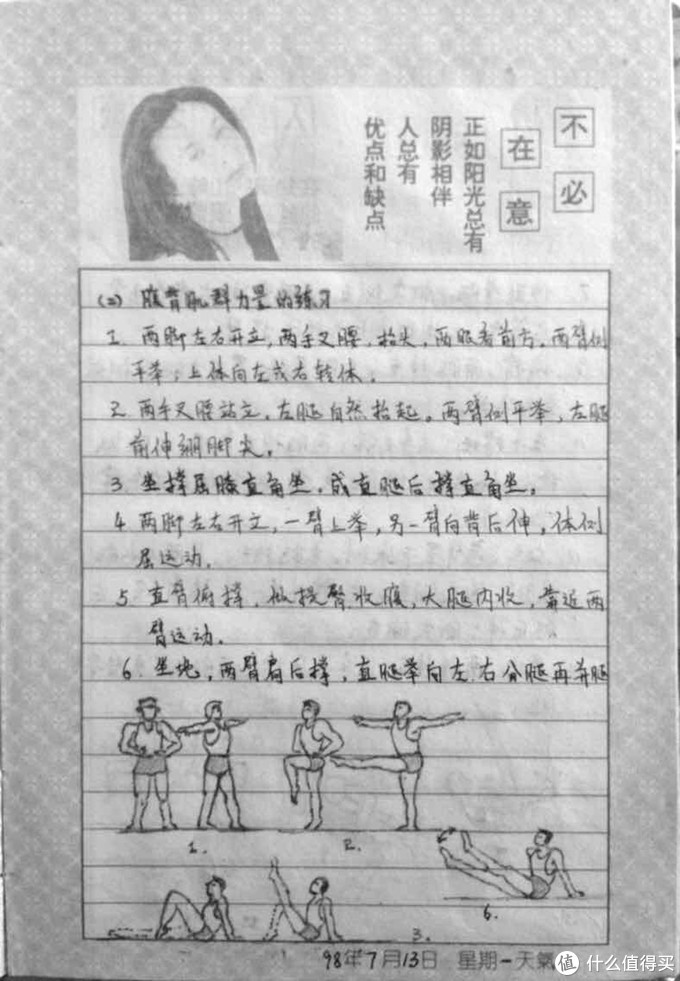 不必
在意
正如阳光总有
阴影相伴
人总有
优点和缺点
(二) 腹背肌群力量的练习
1. 两脚左右开立,两手叉腰,抬头,两眼看前方,两臂侧
平举;上体向左或右转体。
2. 两手叉腰站立,左腿自然抬起。两臂侧平举,左腿
前伸绷脚尖。
3. 坐撑屈膝直角坐,成直腿后撑直角坐。
4. 两脚左右开立,一臂上举,另一臂向背后伸,体侧
屈运动。
5. 直臂俯撑,做提臀收腹,大腿内收,靠近两
臂运动。
6. 坐地,两臂肩后撑,直腿举向左.右分腿再并腿
1.
2.
6.
3.
98年7月13日 星期一 天氣
值 什么值得买